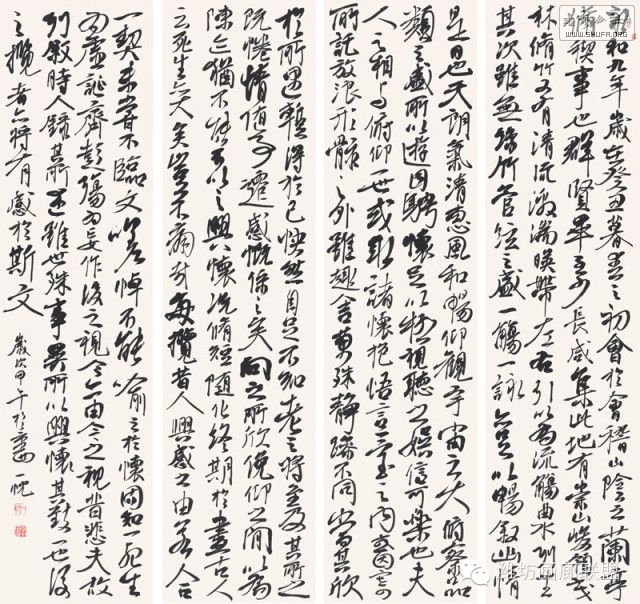 和九年歲在癸丑暮春之初會於會稽山陰之蘭亭
脩禊事也群賢畢至少長咸集此地有崇山峻領茂
林脩竹又有清流激湍暎帶左右引以為流觴曲水列坐
其次雖無絲竹管弦之盛一觴一詠亦足以暢敘幽情
是日也天朗氣清惠風和暢仰觀宇宙之大俯察品
類之盛所以遊目騁懷足以極視聽之娛信可樂也夫
人之相與俯仰一世或取諸懷抱悟言一室之內或因寄
所託放浪形骸之外雖趣舍萬殊靜躁不同當其欣
於所遇暫得於己怏然自足不知老之將至及其所之
既惓情隨事遷感慨係之矣向之所欣俛仰之間以為
陳迹猶不能不以之興懷況脩短隨化終期於盡古人
云死生亦大矣豈不痛哉每攬昔人興感之由若合
一契未嘗不臨文嗟悼不能喻之於懷固知一死生
為虛誕齊彭殤為妄作後之視今亦由今之視昔悲夫故
列敘時人錄其所述雖世殊事異所以興懷其致一也後
之攬者亦將有感於斯文
歲次甲午於
WWW.SHUFA.ORG
潍坊画廊联盟